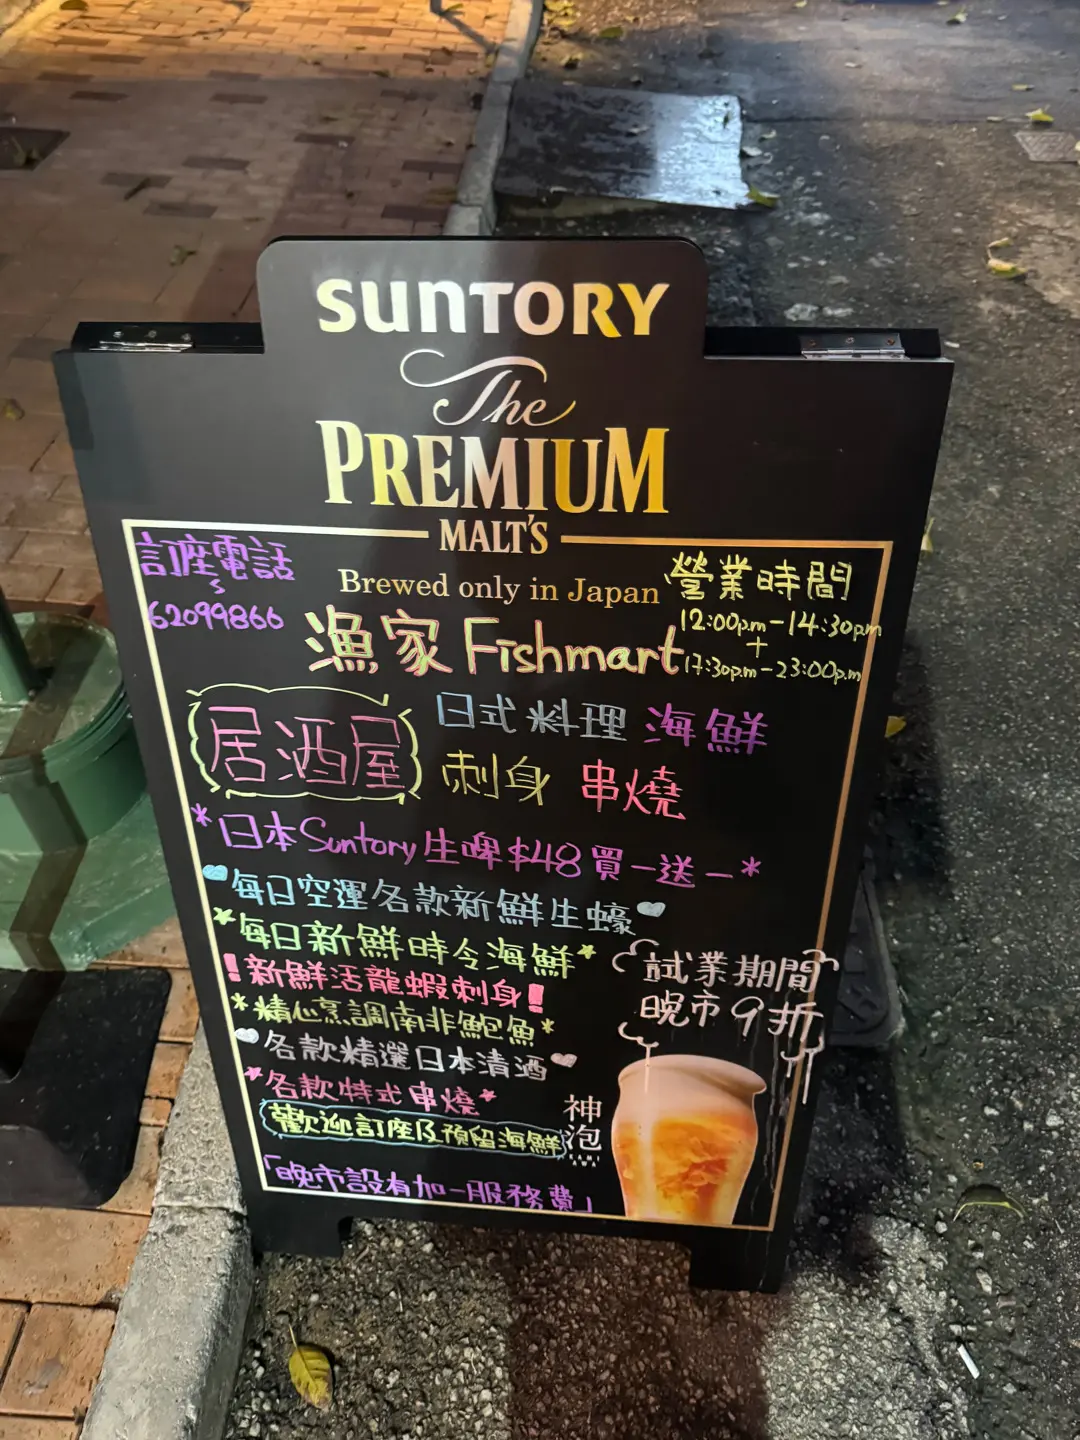 SUNTORY
The
PREMIUM
MALT'S
Brewed only in Japan
訂座電話
62099866
營業時間
12:00p.m-14:30pm
+
17:30p.m-23:00p.m
漁家 Fishmart
居酒屋
日式料理 海鮮
刺身 串燒
*日本Suntory生啤$48買一送一*
每日空運各款新鮮生蠔
*每日新鮮時令海鮮*
!新鮮活龍蝦刺身!
*精心烹調南非鮑魚*
各款精選日本清酒
*各款特式串燒*
歡迎訂座及預留海鮮
「晚市設有加一服務費」
試業期間
晚市9折
神泡
KAMI
AWA